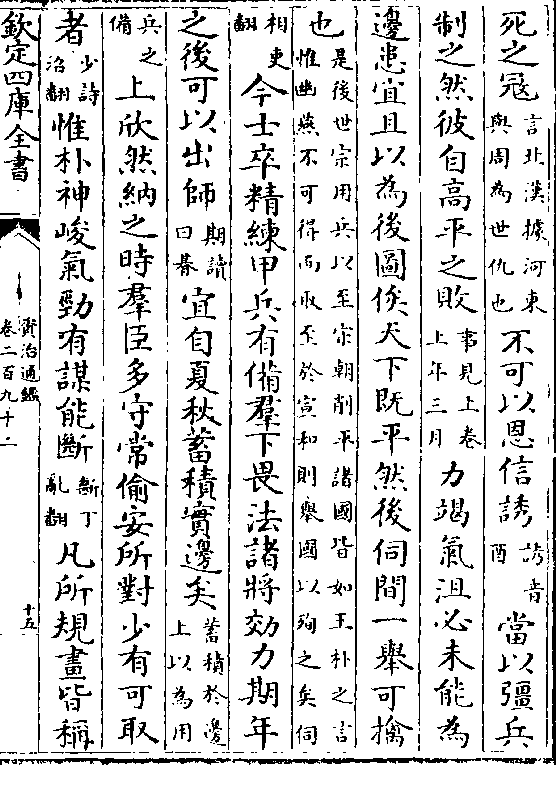 死之冦言北漢據河東與周為世仇也不可以恩信誘誘音酉當以彊兵
制之然彼自高平之敗事見上卷上年三月力竭氣沮必未能為
邊患宜且以為後圖俟天下既平然後伺間一舉可擒
也是後世宗用兵以至宗朝削平諸國皆如王朴之言惟幽燕不可得而取至於宣和則舉國以殉之矣伺
相吏翻今士卒精練甲兵有備羣下畏法諸將効力期年
之後可以出師期讀曰朞宜自夏秋蓄積實邊矣蓄積於邊上以為用
兵之備上欣然納之時羣臣多守常偷安所對少有可取
者少詩沼翻惟朴神峻氣勁有謀能斷斷丁亂翻凡所規畫皆稱
欽定四庫全書
資治通鑑
卷二百九十二
十五